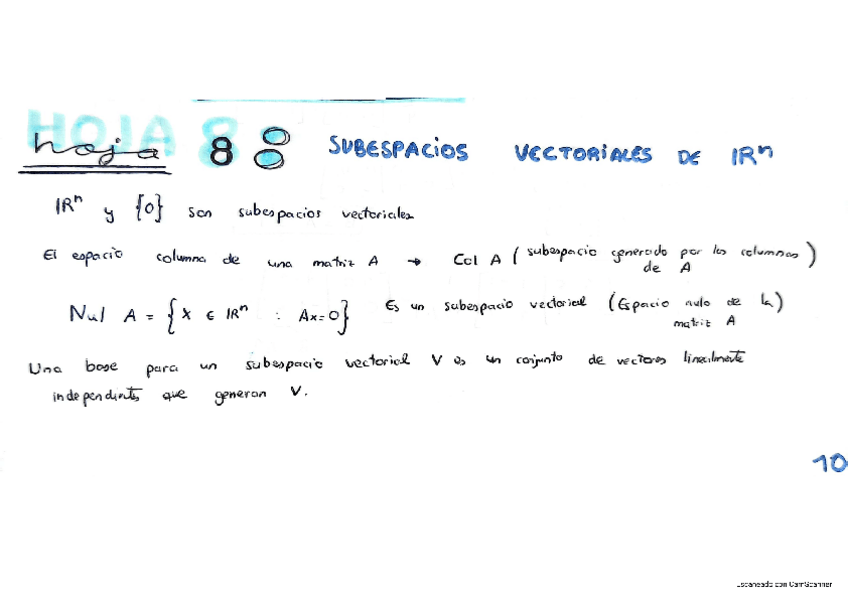 HOJA 8
hoja 8 SUBESPACIOS VECTORIALES DE IRⁿ
IRⁿ y {0} son subespacios vectoriales
El espacio columna de una matriz A → Col A (subespacio generado por las columnas de A)
Nul A = {x ∈ IRⁿ : Ax=0} Es un subespacio vectorial (Espacio nulo de la matriz A)
Una base para un subespacio vectorial V es un conjunto de vectores linealmente
independientes que generan V.
10
Escaneado con CamScanner